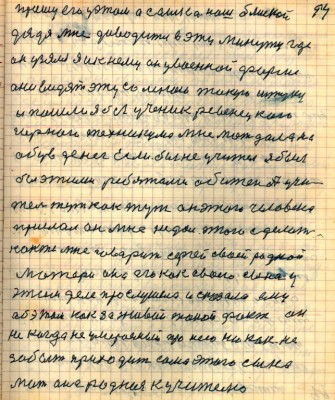 94
прошу его
наш близкой
дядя мне доводится в эту минуту где
он я к нему он у военной форме
они видят эту со мною такую штуку
и пошли я был ученик ревенского
горного техникума мне мат дала на
обув денег Если бы не учител я был
бы этими ребятами обижен А учи-
тел тут как тут он этого человека
он мне не дал этого сделат
как же мне говорит сергей своей родной
матери она его как своего сына у
этом деле прослушила и сказала ему
об этом как за живой такой факт он
не когда не умираемый про него ни как не
забыт приходит сама этого сына
мат она родная к учителю